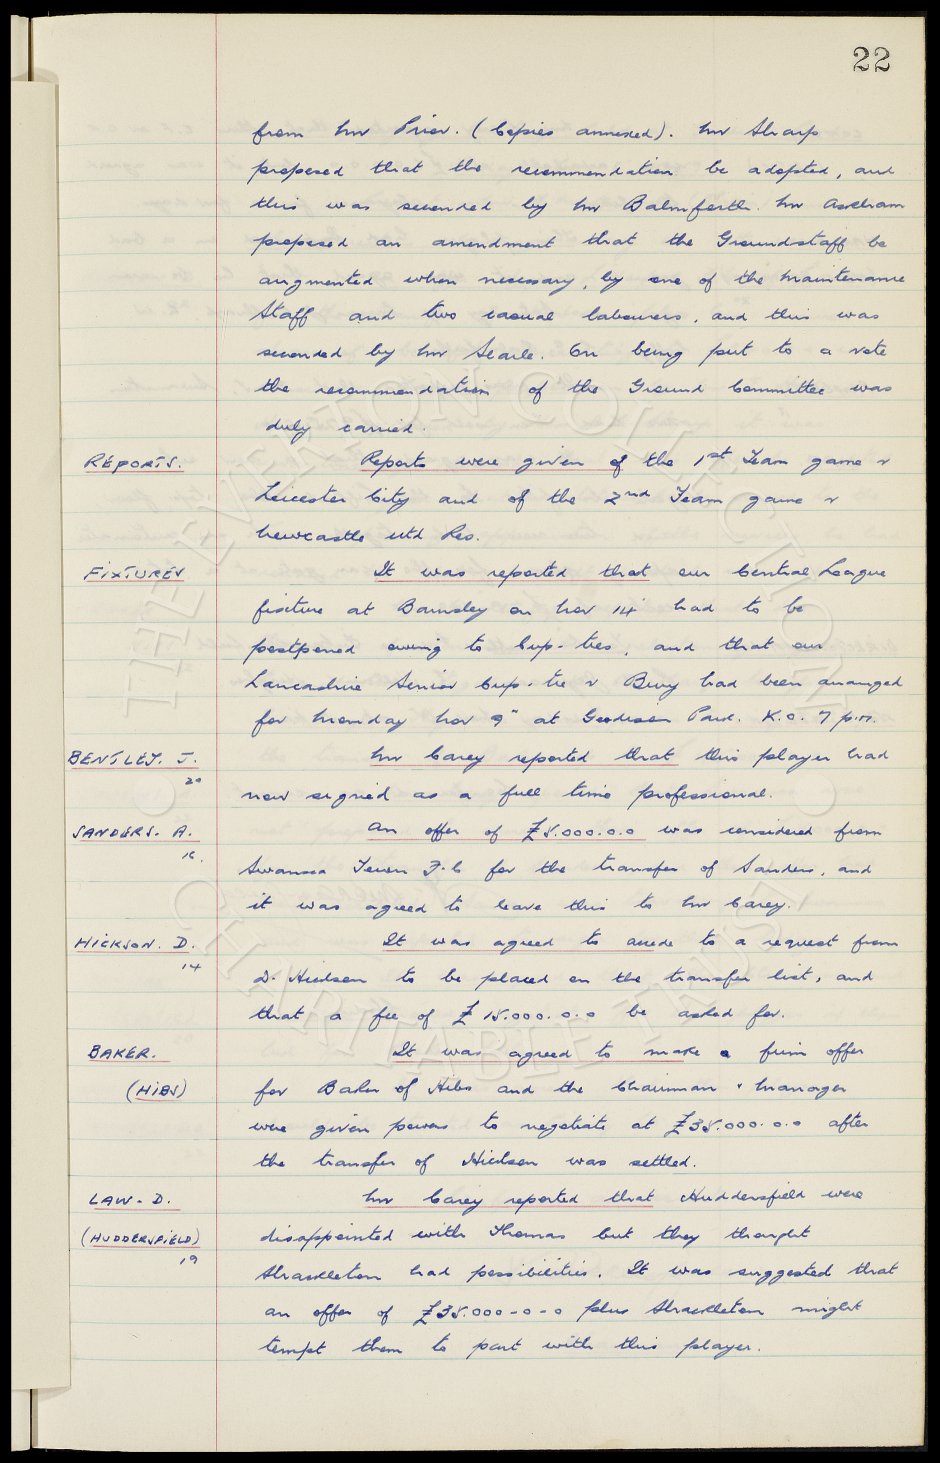 22
from Mr Prior. (Copies annexed). Mr Sharp
proposed that the recommendation be adopted, and
this was seconded by Mr Balmforth. Mr Askham
proposed an amendment that the Groundstaff be
augmented when necessary, by one of the Maintenance
Staff and two casual labourers, and this was
seconded by Mr Searle. On being put to a vote
the recommendation of the Ground Committee was
duly carried.
REPORTS. Reports were given of the 1st Team game v
Leicester City and of the 2nd Team game v
Newcastle Utd Res.
FIXTURES It was reported that our Central League
fixture at Barnsley on Nov 14 had to be
postponed owing to Cup-ties, and that our
Lancashire Senior Cup-tie v Bury had been arranged
for Monday Nov 9" at Goodison Park. K.O. 7 p.m.
BENTLEY. J. Mr Carey reported that this player had
20
now signed as a full time professional.
SANDERS. A. An offer of £5.000.0.0 was considered from
16.
Swansea Town F.C for the transfer of Sanders, and
it was agreed to leave this to Mr Carey.
HICKSON. D. It was agreed to accede to a request from
14
D. Hickson to be placed on the transfer list, and
that a fee of £15.000.0.0 be asked for.
BAKER. It was agreed to make a firm offer
(HIBS) for Baker of Hibs and the Chairman & Manager
were given powers to negotiate at £35.000.0.0 after
the transfer of Hickson was settled.
LAW. D. Mr Carey reported that Huddersfield were
(HUDDERSFIELD) disappointed with Thomas but they thought
19
Shackleton had possibilities. It was suggested that
an offer of £35.000-0-0 plus Shackleton might
tempt them to part with this player.
THE EVERTON COLLECTION
CHARITABLE TRUST